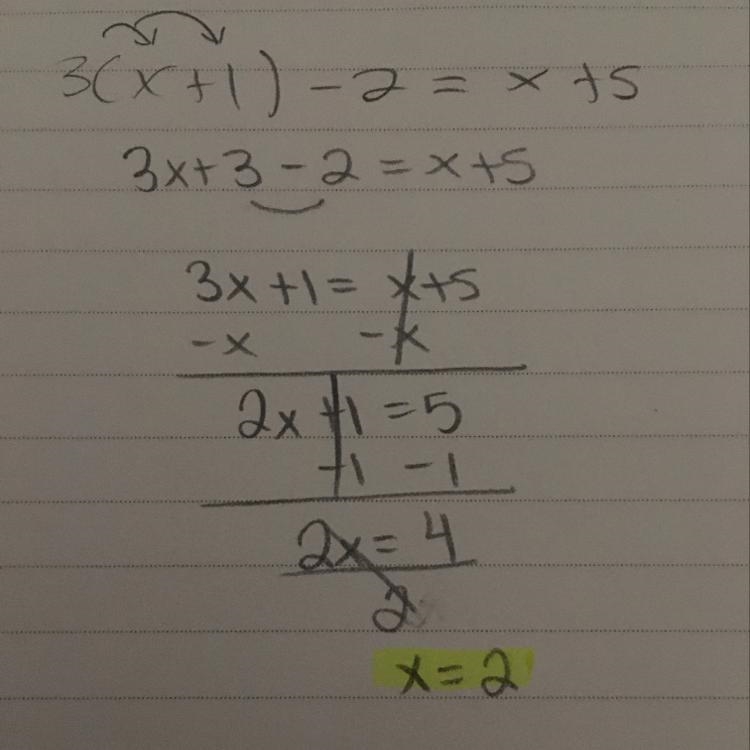 3(x+1) - 2 = x + 5
3x+3 - 2 = x+5
3x +1 = x+5
-x -x
2x +1 = 5
-1 -1
2x = 4
2
x = 2